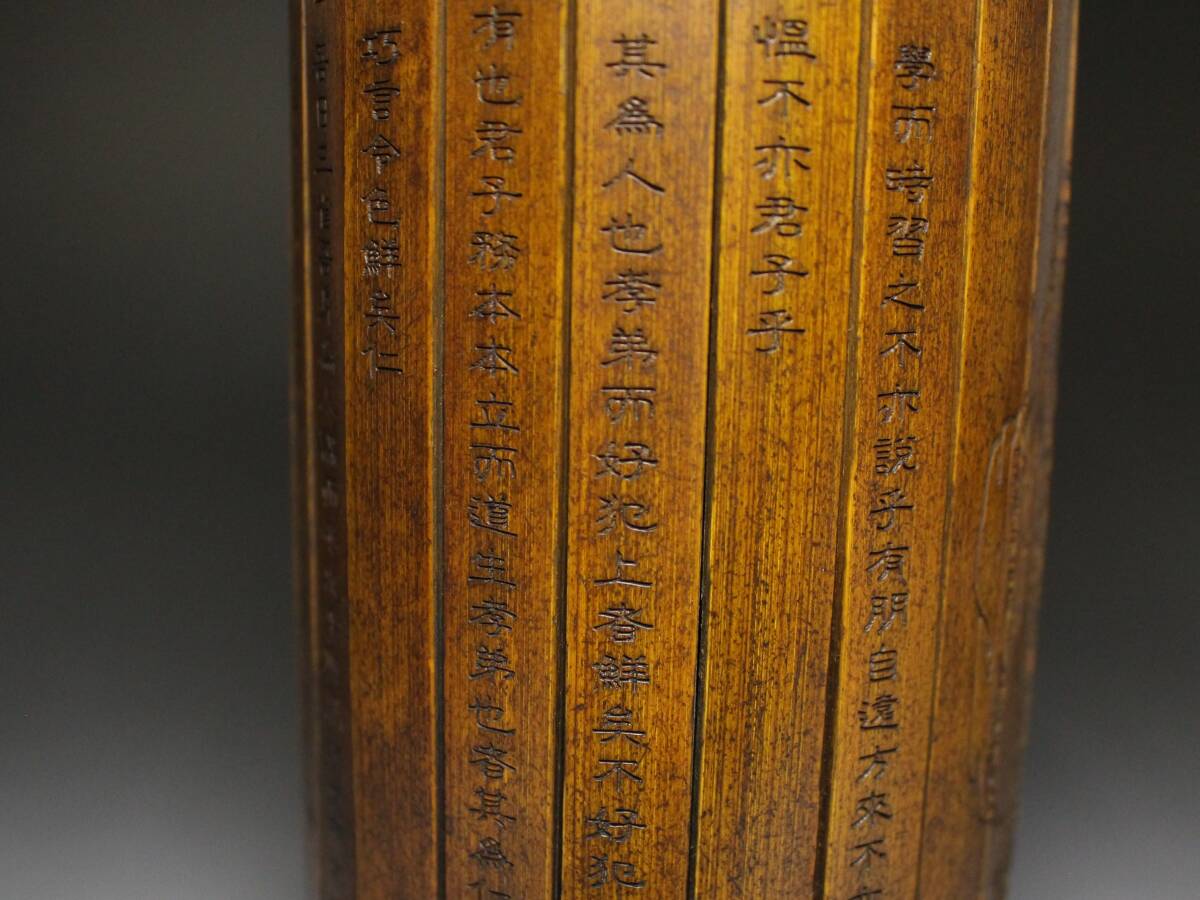 學而時習之不亦說乎有朋自遠方來不
慍不亦君子乎
其為人也孝弟而好犯上者鮮矣不好犯
有也君子務本本立而道生孝弟也者其為仁
巧言令色鮮矣仁
吾日三